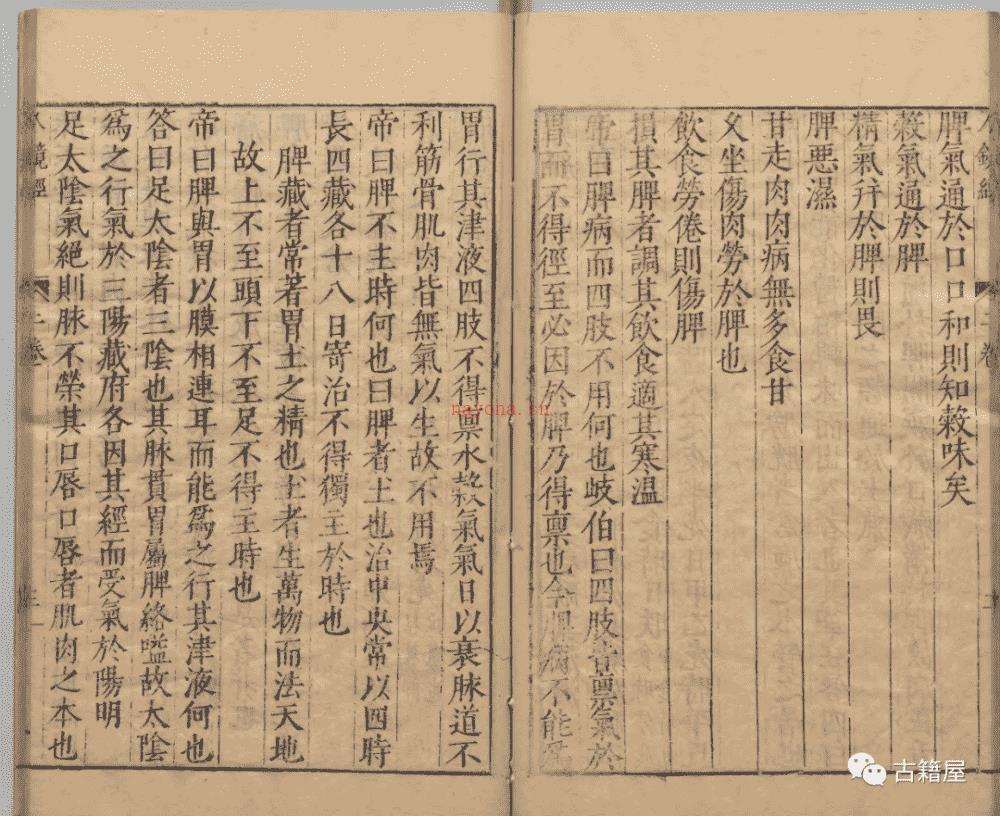 脾氣通於口口和則知穀味矣
穀氣通於脾
精氣并於脾則畏
脾惡濕
甘走肉肉病無多食甘
久坐傷肉勞於脾也
飲食勞倦則傷脾
損其脾者調其飲食適其寒温
帝曰脾病而四肢不用何也岐伯曰四肢皆禀氣於
胃而不得徑至必因於脾乃得禀也今脾病不能爲
胃行其津液四肢不得禀水榖氣氣日以衰脉道不
利筋骨肌肉皆無氣以生故不用焉
帝曰脾不主時何也曰脾者土也治中央常以四時
長四藏各十八日寄治不得獨主於時也
脾藏者常著胃土之精也土者生萬物而法天地
故上不至頭下不至足不得主時也
帝曰脾與胃以膜相連耳而能爲之行其津液何也
答曰足太陰者三陰也其脉貫胃屬脾絡嗌故太陰
爲之行氣於三陽藏府各因其經而受氣於陽明
足太陰氣絕則脉不榮其口唇口唇者肌肉之本也
鏡經
上卷
nayona.cn
古籍屋